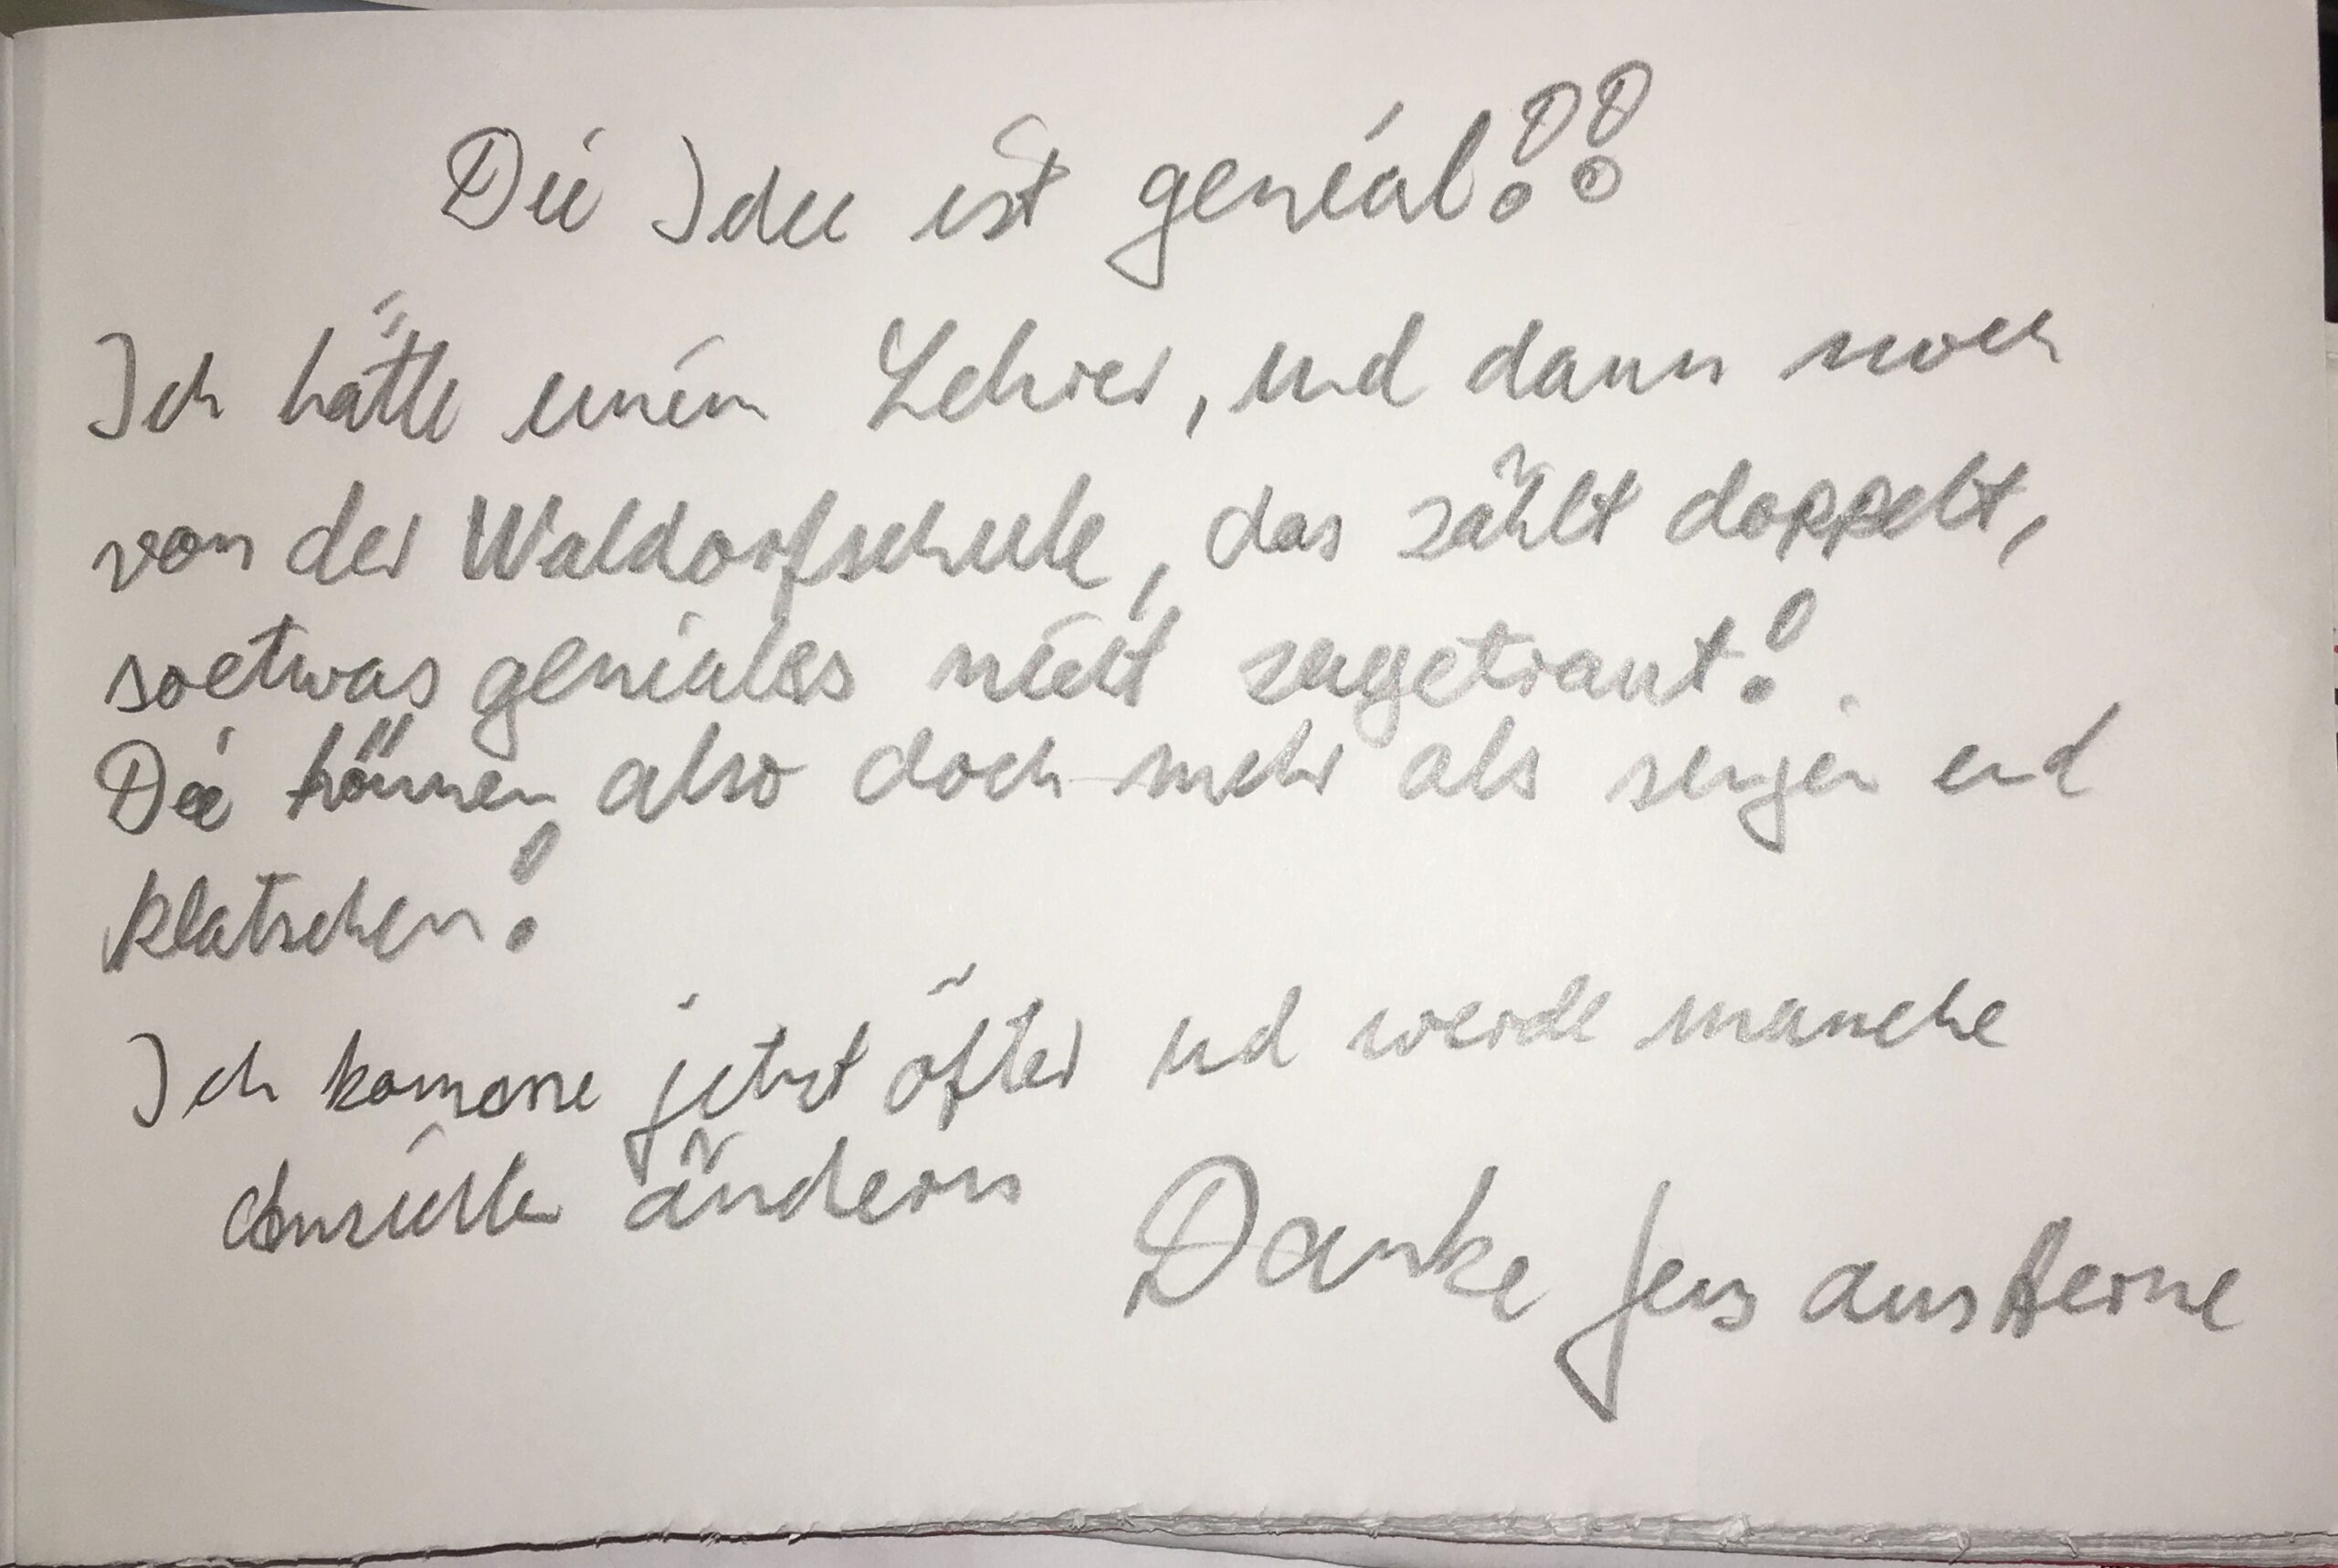 Die Idee ist genial!!
Ich hätte einem Lehrer, und dann noch
von der Waldorfschule, das zählt doppelt,
soetwas geniales nicht zugetraut!
Die können also doch mehr als singen und
klatschen!
Ich komme jetzt öfter und werde manche
Ansichten ändern
Danke Jens aus Herne